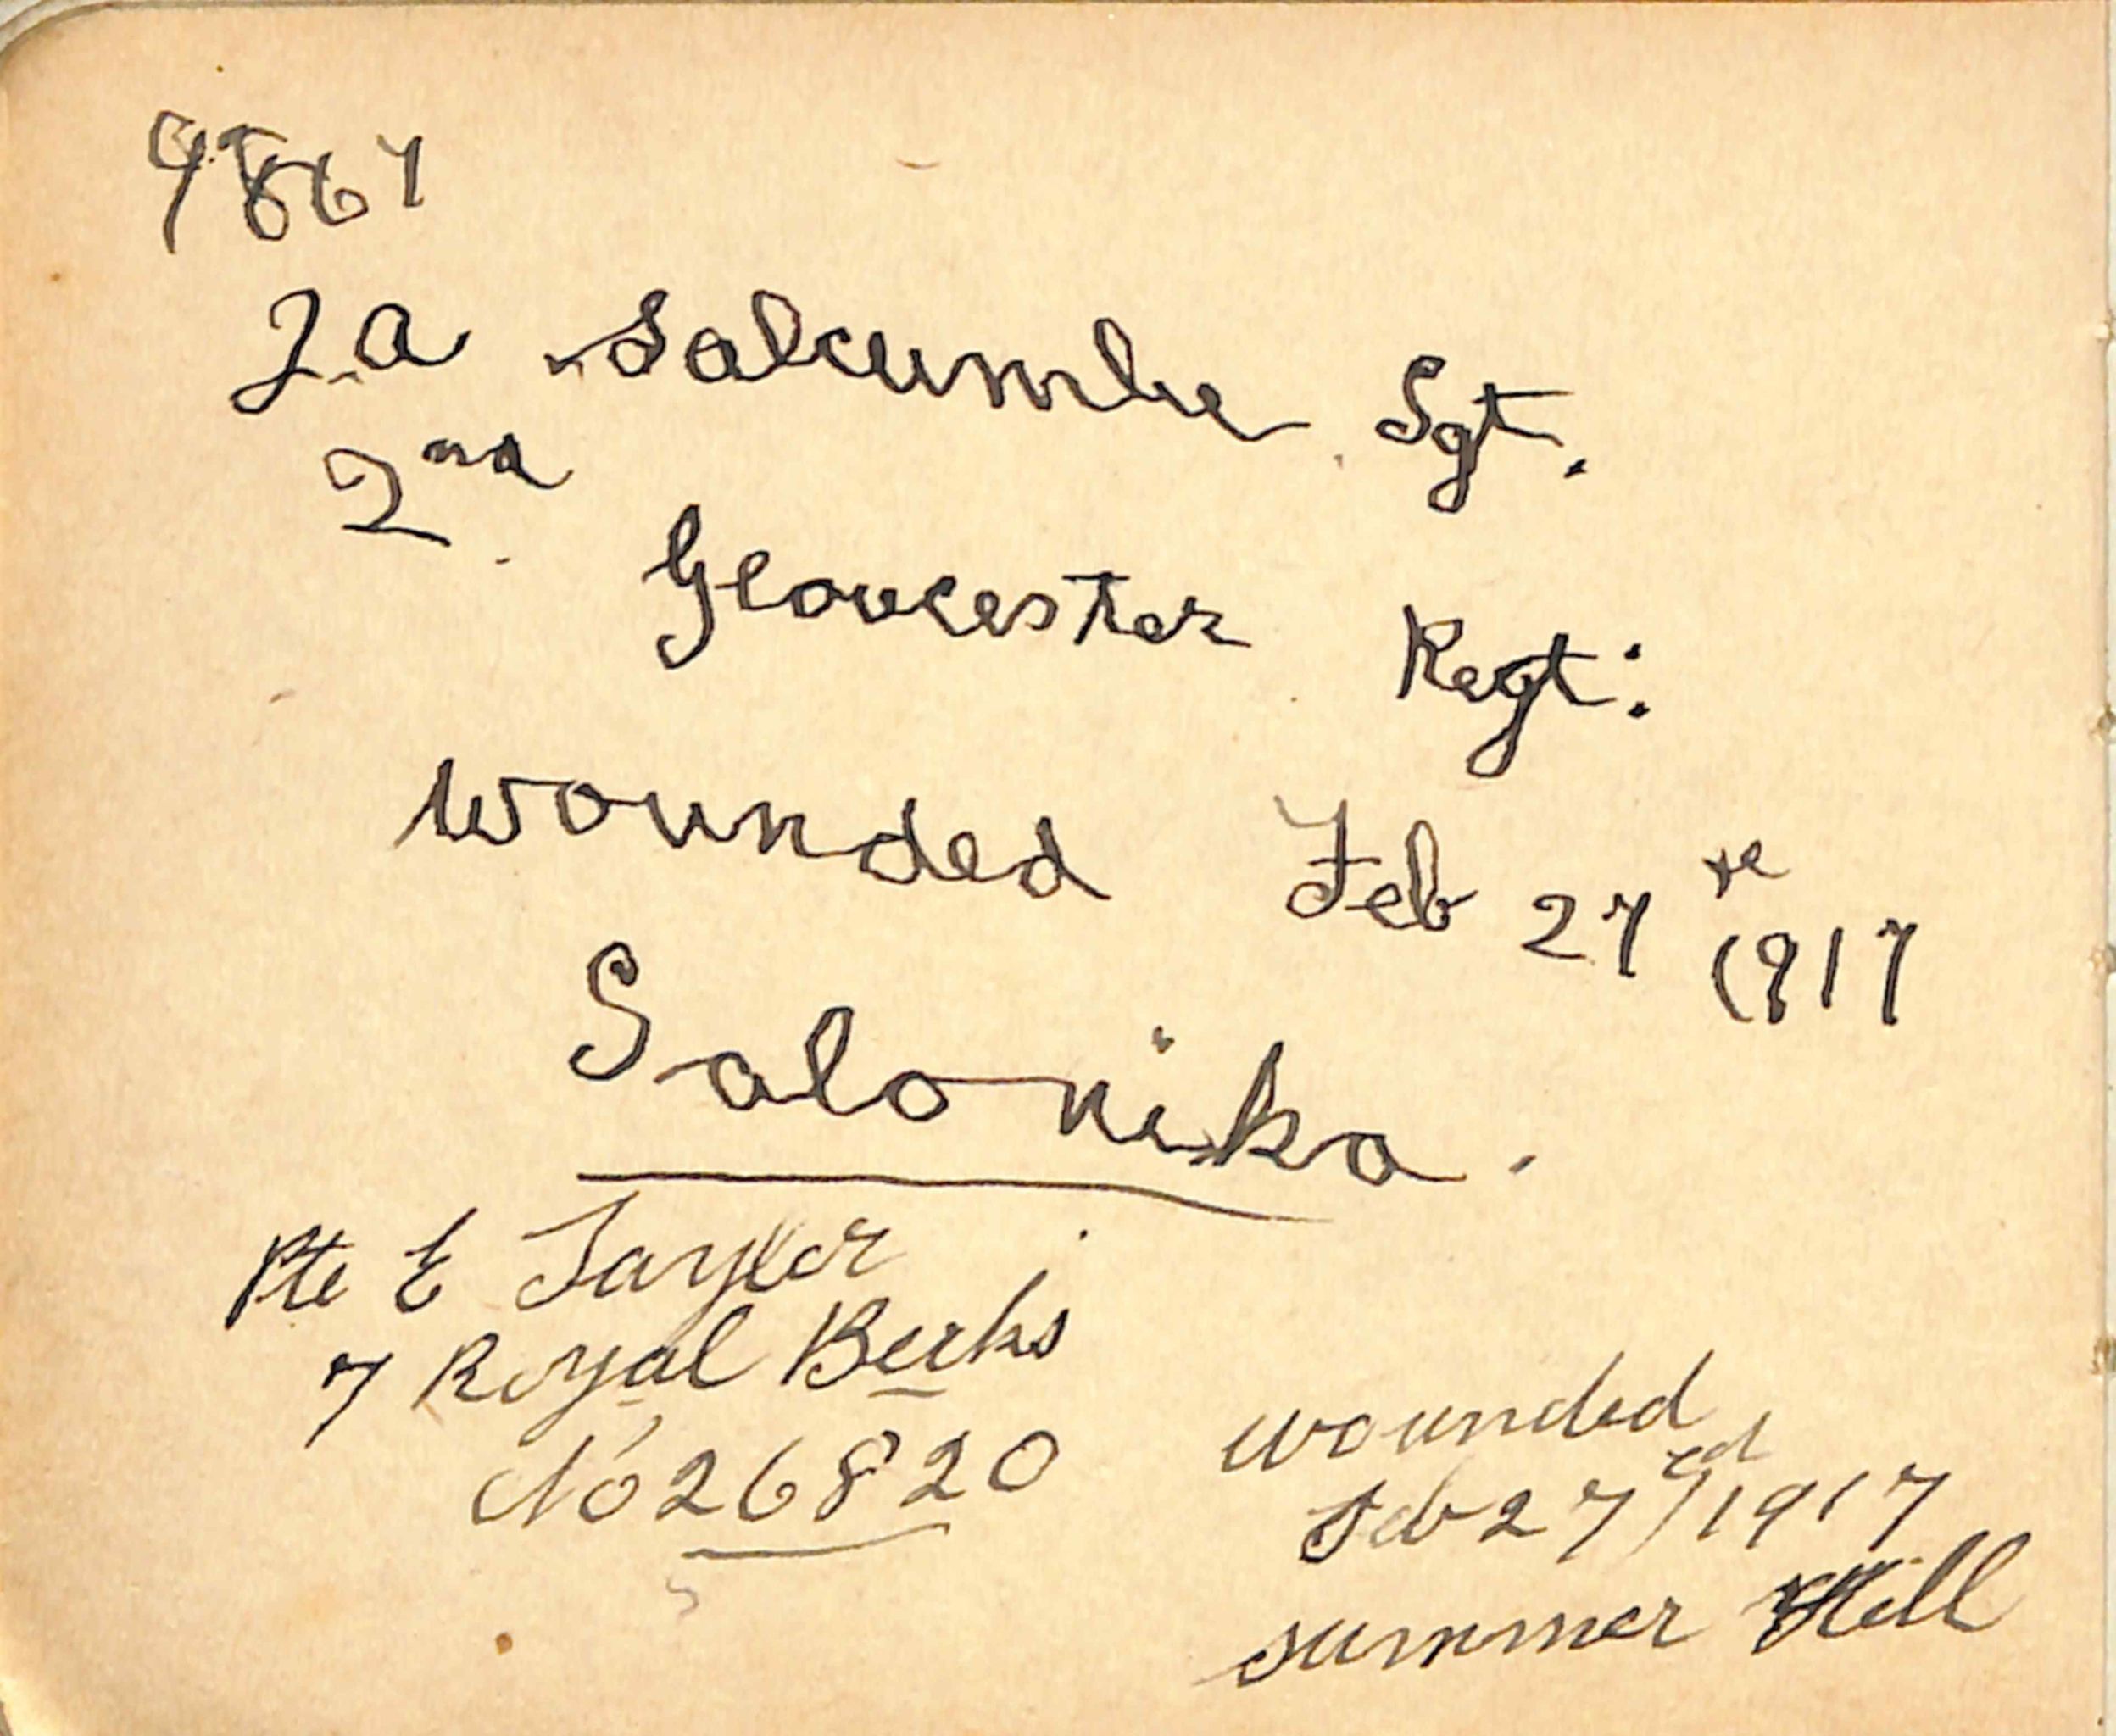 9867
J.A Salcumbe Sgt.
2nd Gloucester Regt:
Wounded Feb 27th 1917
Salonika.
Pte E Taylor
7 Royal Berks
No 26820
wounded
Feb 27ed/1917
summer Hill